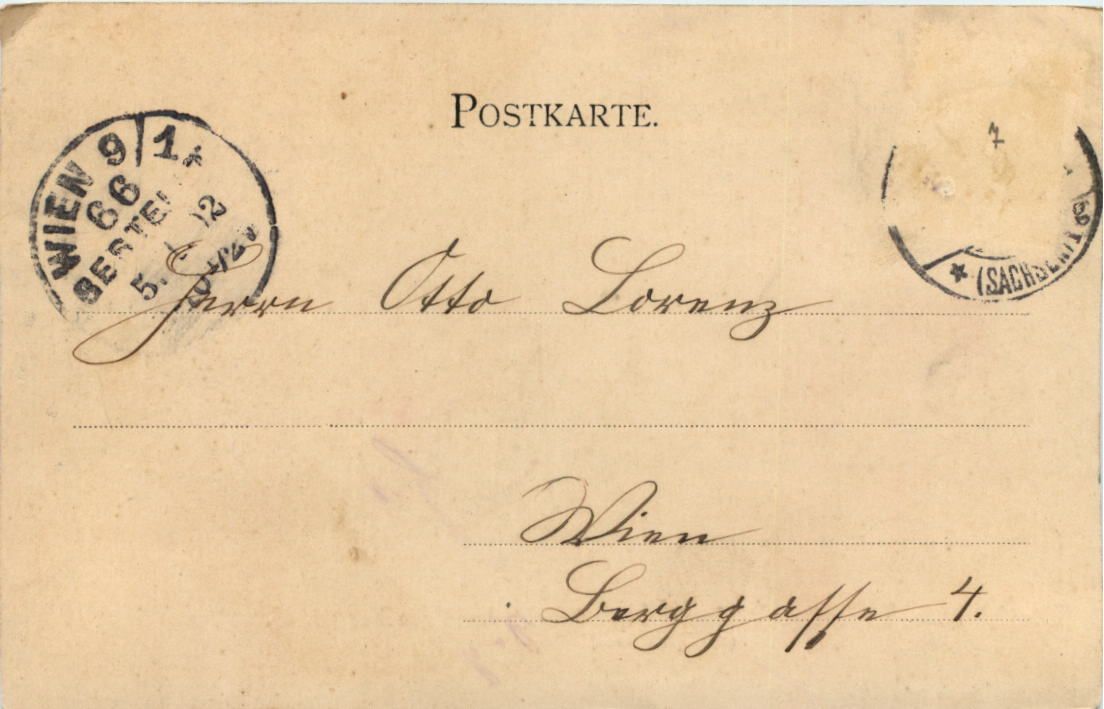 POSTKARTE.
WIEN 9/1
66
BESTE
5. 02
7
* (SACHSEN)
Herrn Otto Lorenz
Wien
Berggasse 4.